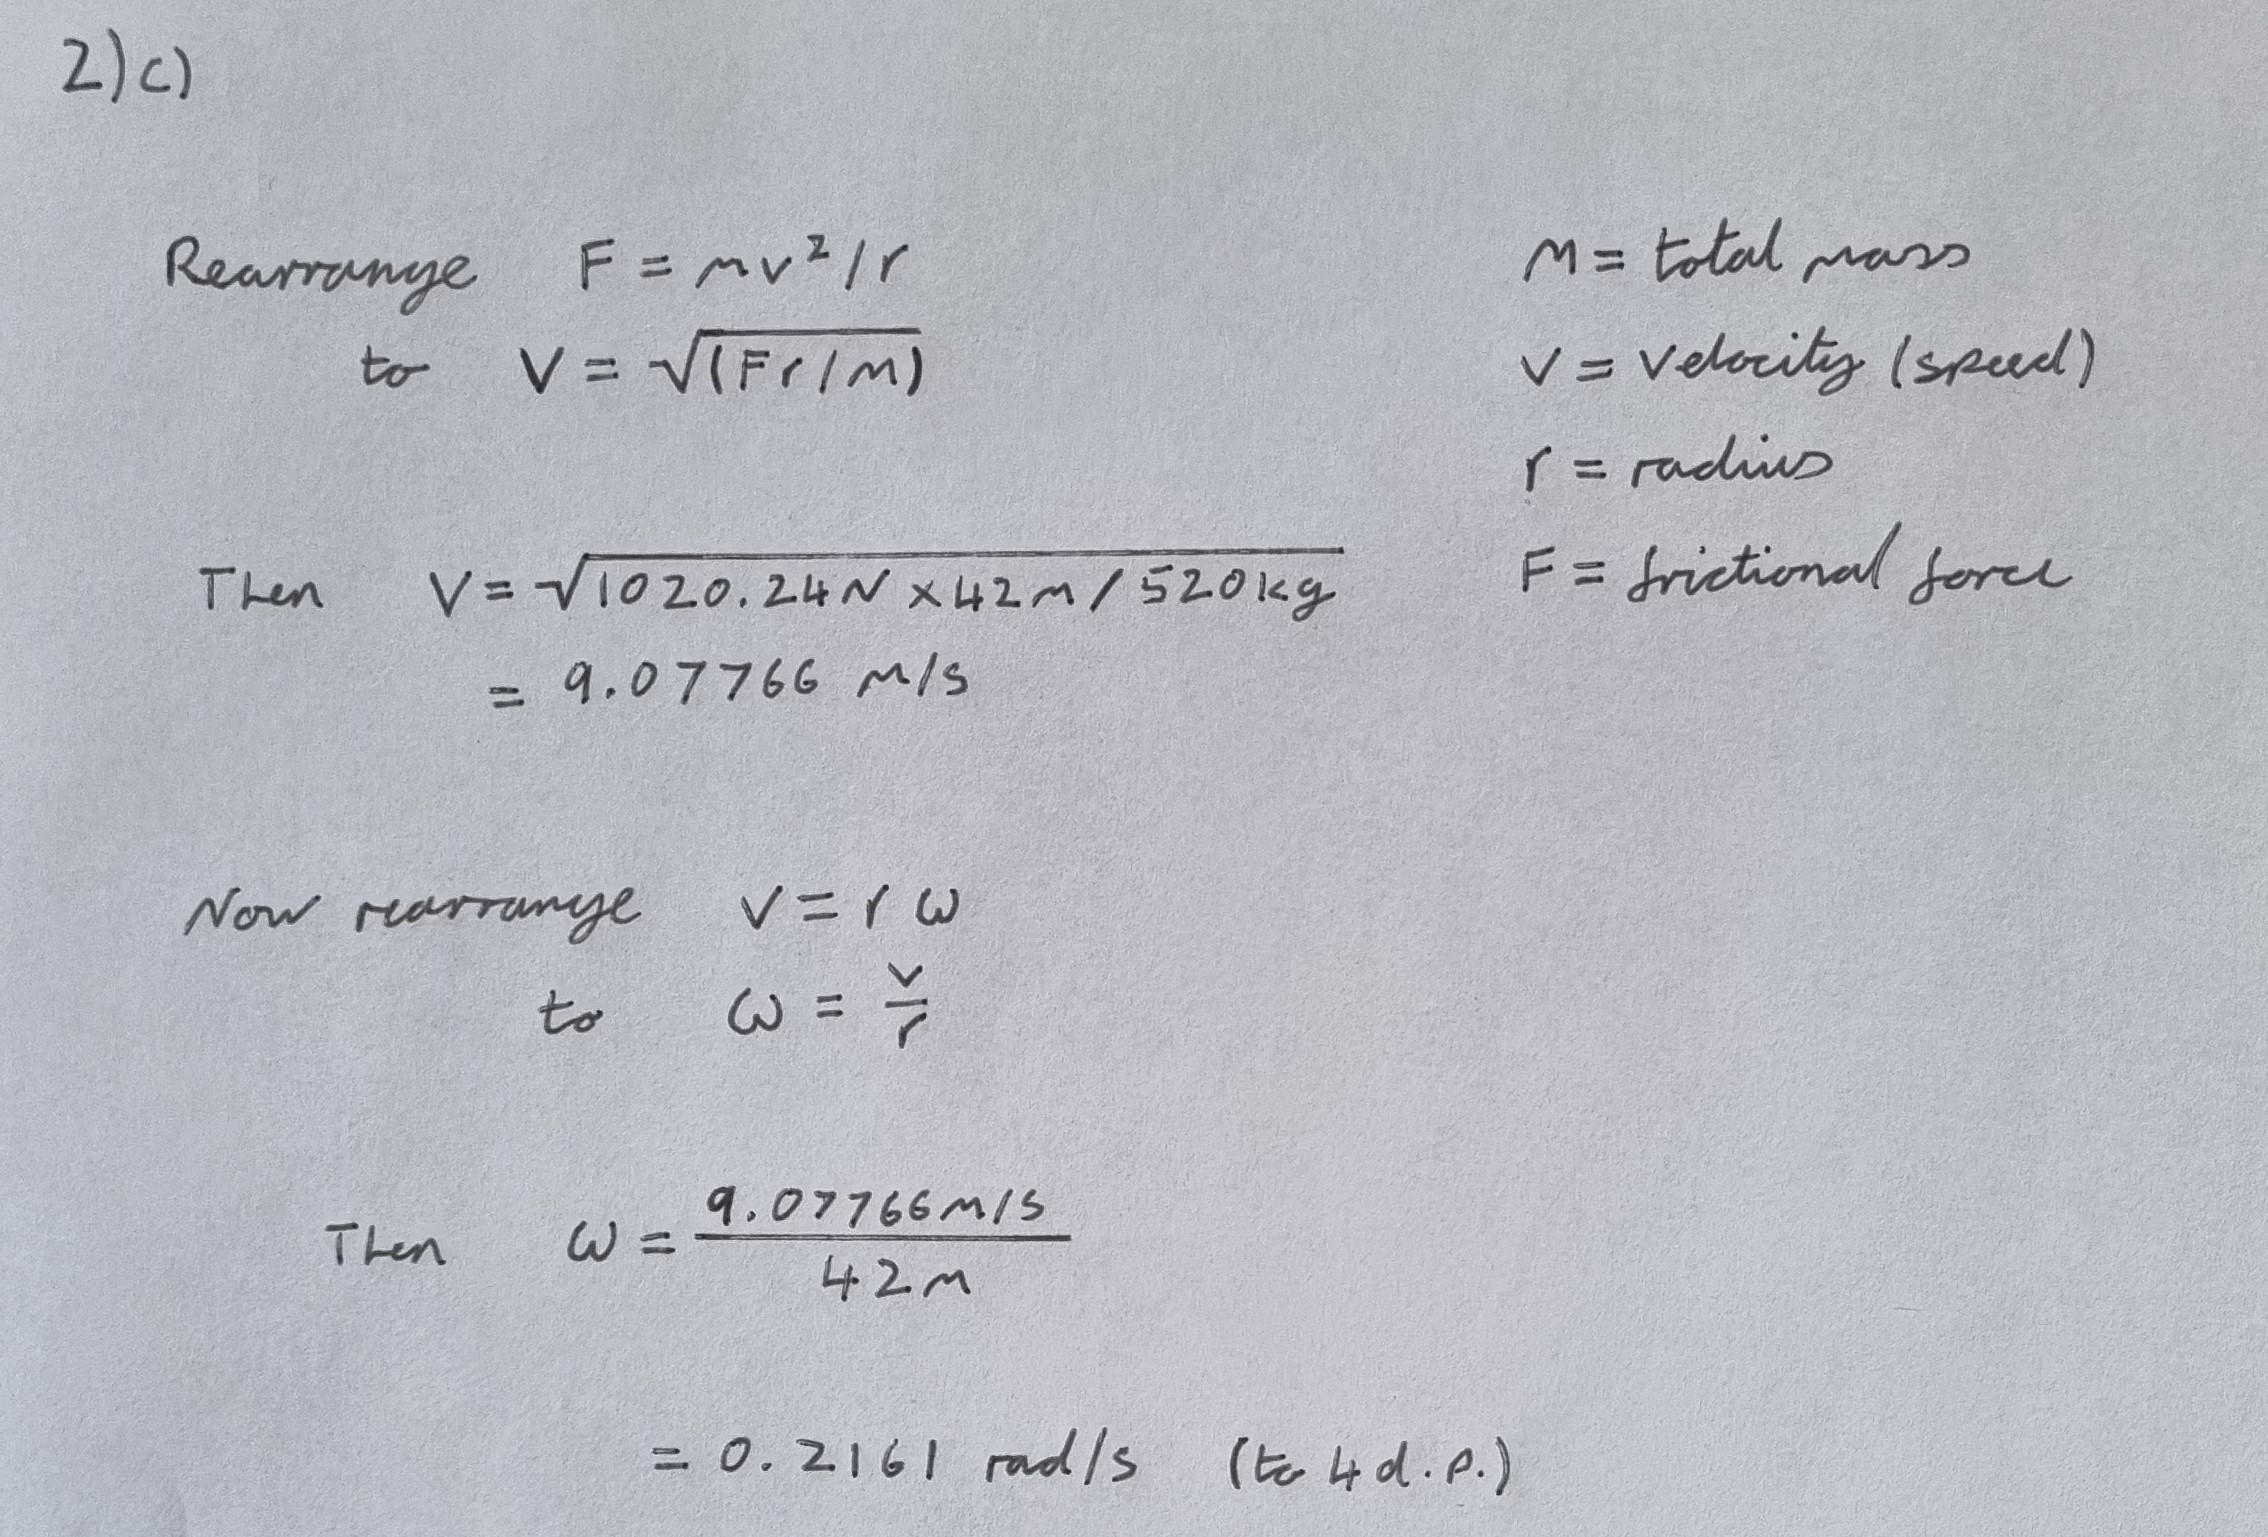 2)c)
Rearrange F = mv²/r
to V = √(Fr/m)
m = total mass
v = velocity (speed)
r = radius
F = frictional force
Then V = √1020.24N x 42m / 520kg
= 9.07766 m/s
Now rearrange v = r ω
to ω = v/r
Then ω = 9.07766m/s / 42m
= 0.2161 rad/s (to 4 d.p.)